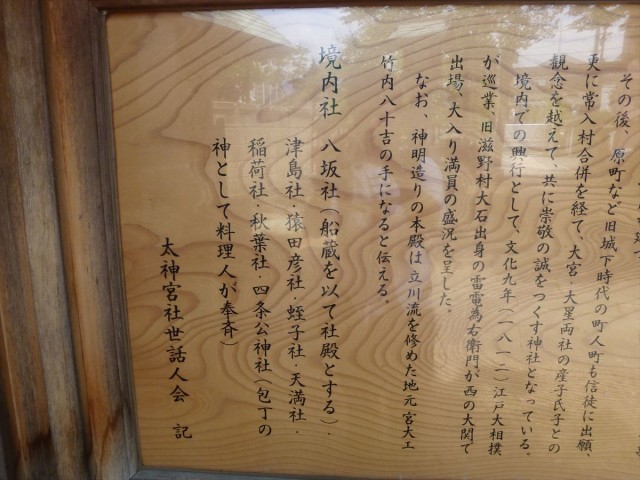 その後、原町など旧城下時代の町人町も信徒に出願、
更に常入村合併を経て、大宮・大星両社の産子氏子との
観念を越えて、共に崇敬の誠をつくす神社となっている。
境内での興行として、文化九年(一八一二)江戸大相撲
が巡業、旧滋野村大石出身の雷電為右衛門が西の大関で
出場、大入り満員の盛況を呈した。
なお、神明造りの本殿は立川流を修めた地元宮大工
竹内八十吉の手になると伝える。
境内社 八坂社(船蔵を以て社殿とする)・
津島社・猿田彦社・蛭子社・天満社・
稲荷社・秋葉社・四条公神社(包丁の
神として料理人が奉斉)
太神宮社世話人会 記